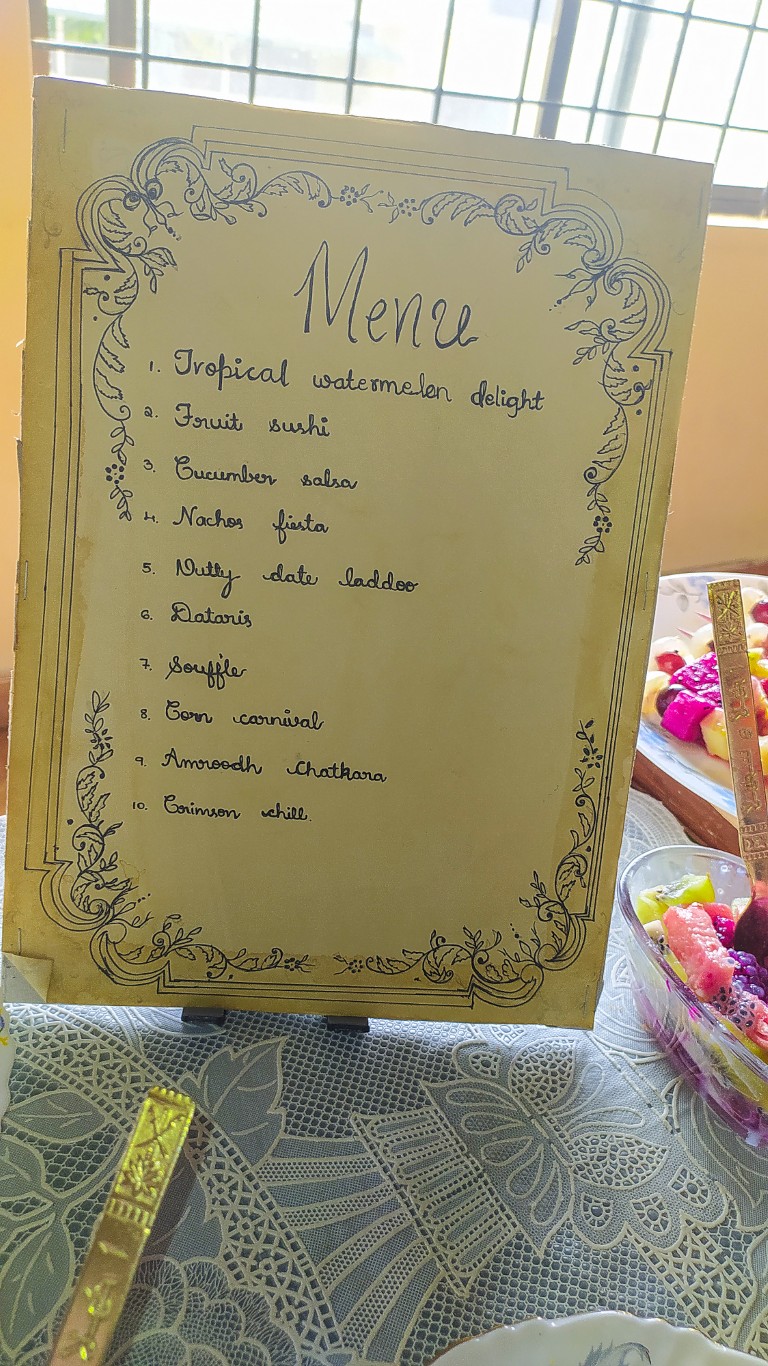 Menu
1. Tropical watermelon delight
2. Fruit sushi
3. Cucumber salsa
4. Nachos fiesta
5. Nutty date laddoo
6. Dataris
7. Souffle
8. Corn carnival
9. Amroodh Chatkara
10. Crimson chill.